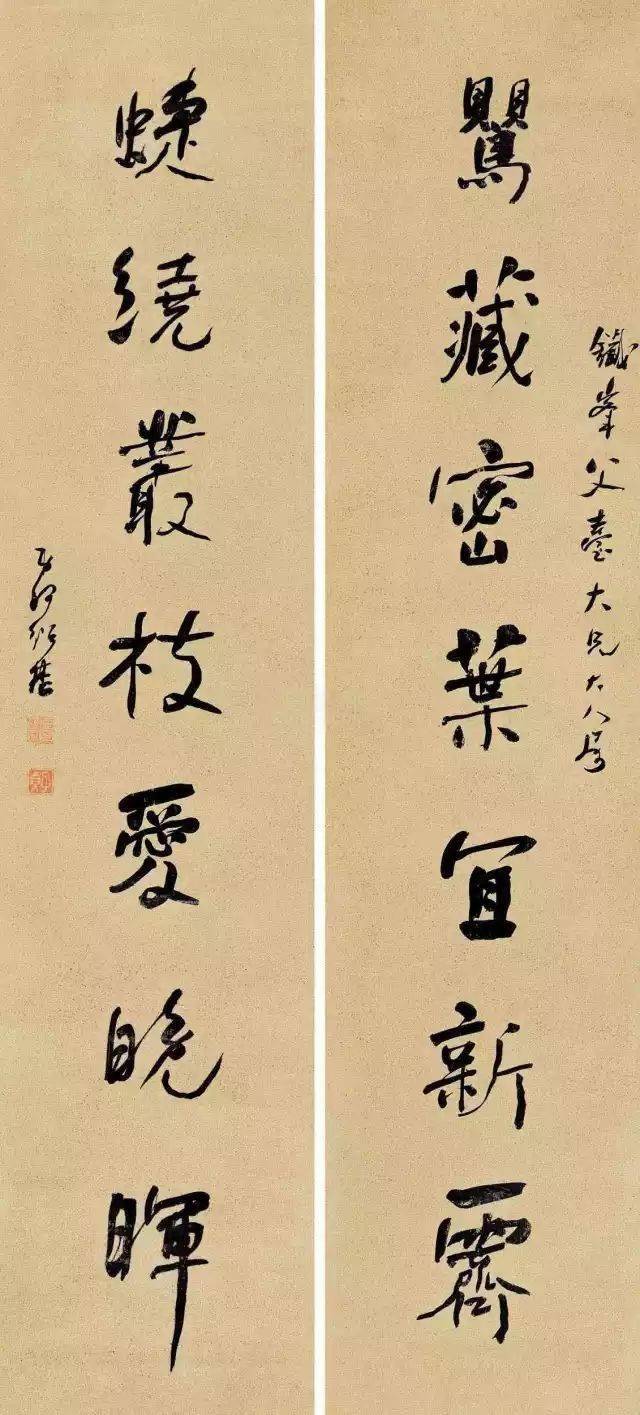 鐵峯父臺大兄大人屬
鸎藏密葉宜新霽
蜨繞叢枝愛晚暉
弟何紹基